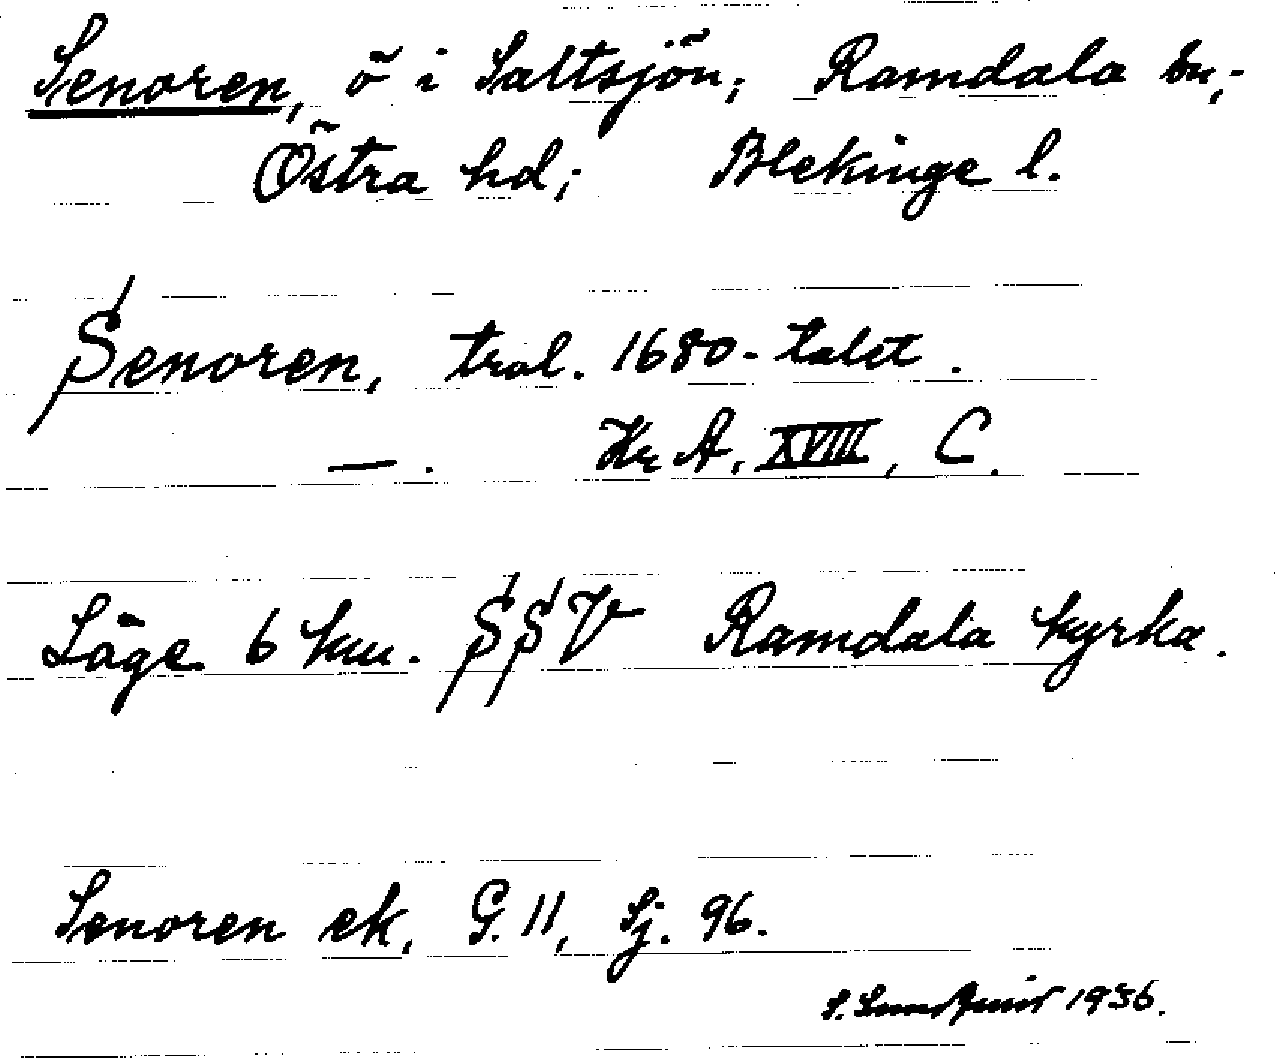 Senoren, ö i Saltsjön; Ramdala sn;-
Östra hd; Blekinge l.
Senoren, trol. 1680-talet.
—. Kr A, XVIII, C.
Läge 6 km. SSV Ramdala kyrka.
Senoren ek, G. 11, Sj. 96.
S. 1936.